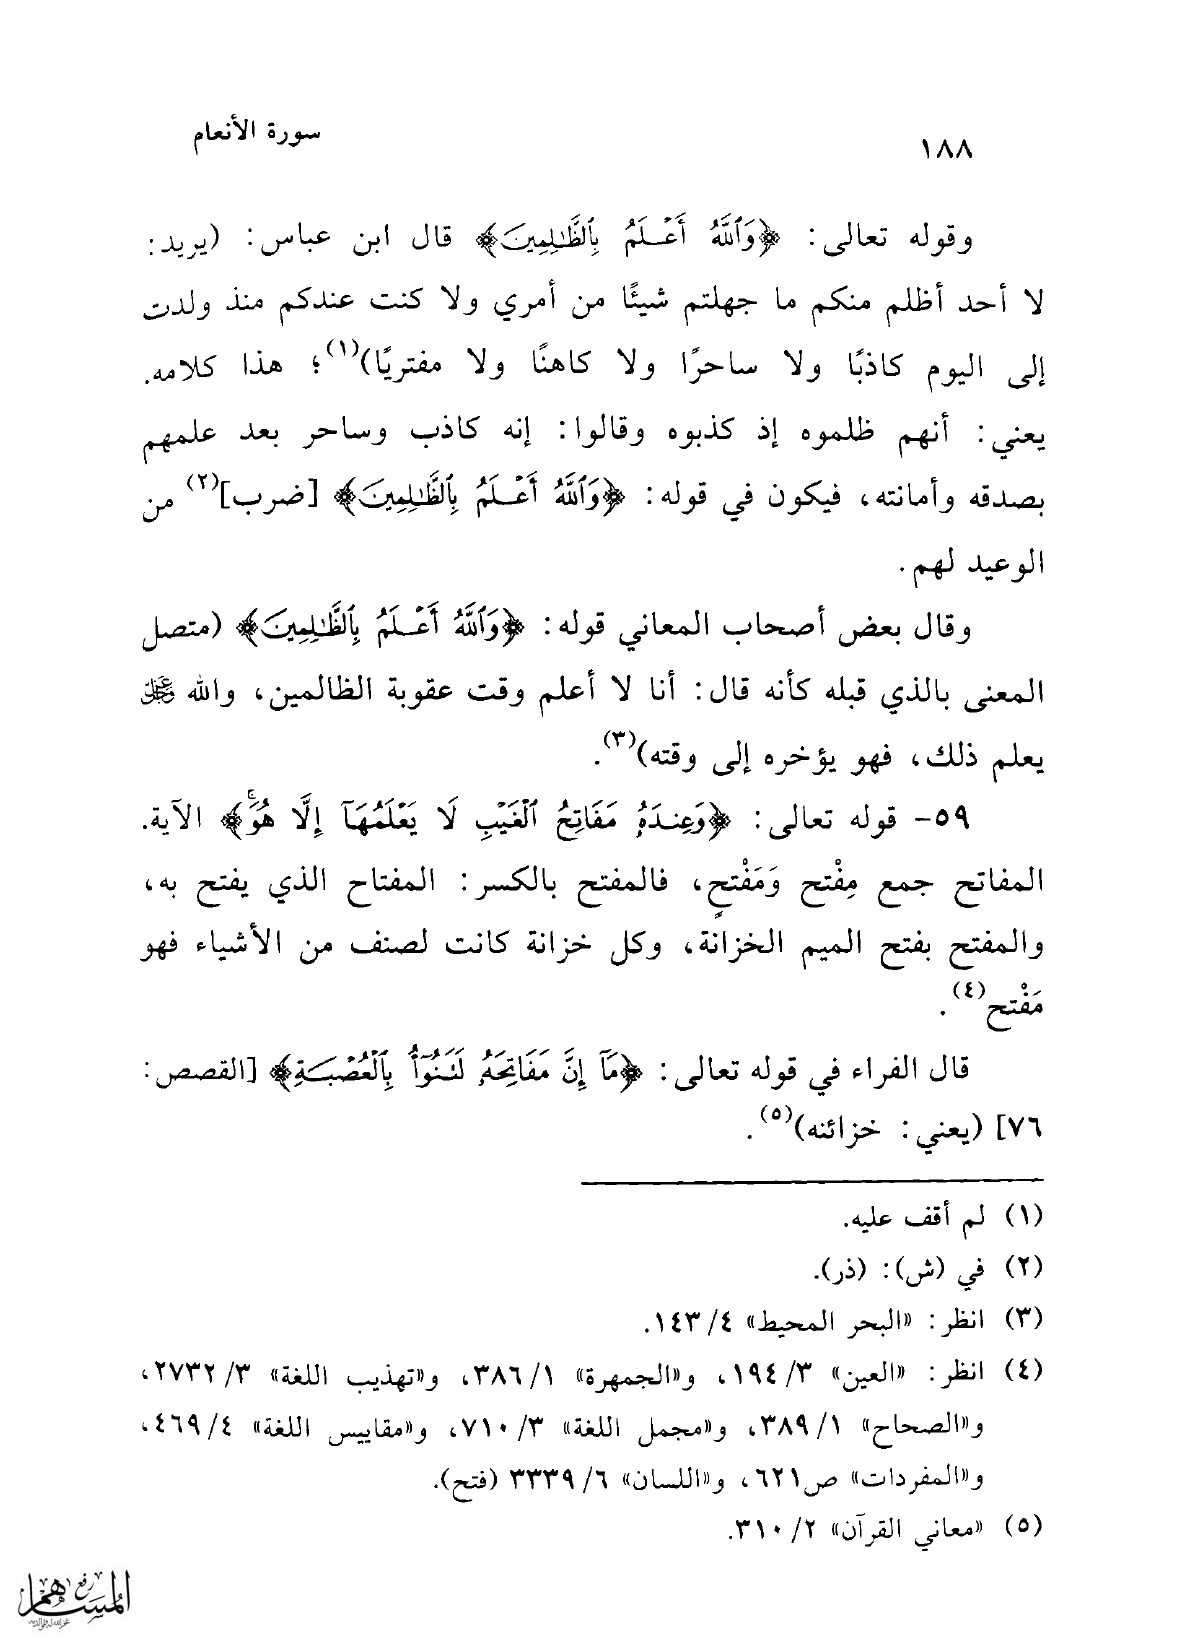 ١٨٨
سورة الأنعام
وقوله تعالى: ﴿وَٱللَّهُ أَعْلَمُ بِٱلظَّٰلِمِينَ﴾ قال ابن عباس: (يريد:
لا أحد أظلم منكم ما جهلتم شيئًا من أمري ولا كنت عندكم منذ ولدت
إلى اليوم كاذبًا ولا ساحرًا ولا كاهنًا ولا مفتريًا)(١)؛ هذا كلامه.
يعني: أنهم ظلموه إذ كذبوه وقالوا: إنه كاذب وساحر بعد علمهم
بصدقه وأمانته، فيكون في قوله: ﴿وَٱللَّهُ أَعْلَمُ بِٱلظَّٰلِمِينَ﴾ [ضرب](٢) من
الوعيد لهم.
وقال بعض أصحاب المعاني قوله: ﴿وَٱللَّهُ أَعْلَمُ بِٱلظَّٰلِمِينَ﴾ (متصل
المعنى بالذي قبله كأنه قال: أنا لا أعلم وقت عقوبة الظالمين، والله ﷿
يعلم ذلك، فهو يؤخره إلى وقته)(٣).
٥٩- قوله تعالى: ﴿وَعِندَهُۥ مَفَاتِحُ ٱلْغَيْبِ لَا يَعْلَمُهَآ إِلَّا هُوَۚ﴾ الآية.
المفاتح جمع مِفْتح وَمَفْتحٍ، فالمفتح بالكسر: المفتاح الذي يفتح به،
والمفتح بفتح الميم الخزانة، وكل خزانة كانت لصنف من الأشياء فهو
مَفْتح(٤).
قال الفراء في قوله تعالى: ﴿مَآ إِنَّ مَفَاتِحَهُۥ لَتَنُوٓأُ بِٱلْعُصْبَةِ﴾ [القصص:
٧٦] (يعني: خزائنه)(٥).
(١) لم أقف عليه.
(٢) في (ش): (ذر).
(٣) انظر: «البحر المحيط» ٤/ ١٤٣.
(٤) انظر: «العين» ٣/ ١٩٤، و«الجمهرة» ١/ ٣٨٦، و«تهذيب اللغة» ٣/ ٢٧٣٢،
و«الصحاح» ١/ ٣٨٩، و«مجمل اللغة» ٣/ ٧١٠، و«مقاييس اللغة» ٤/ ٤٦٩،
و«المفردات» ص٦٢١، و«اللسان» ٦/ ٣٣٣٩ (فتح).
(٥) «معاني القرآن» ٢/ ٣١٠.
رفع
المساهم